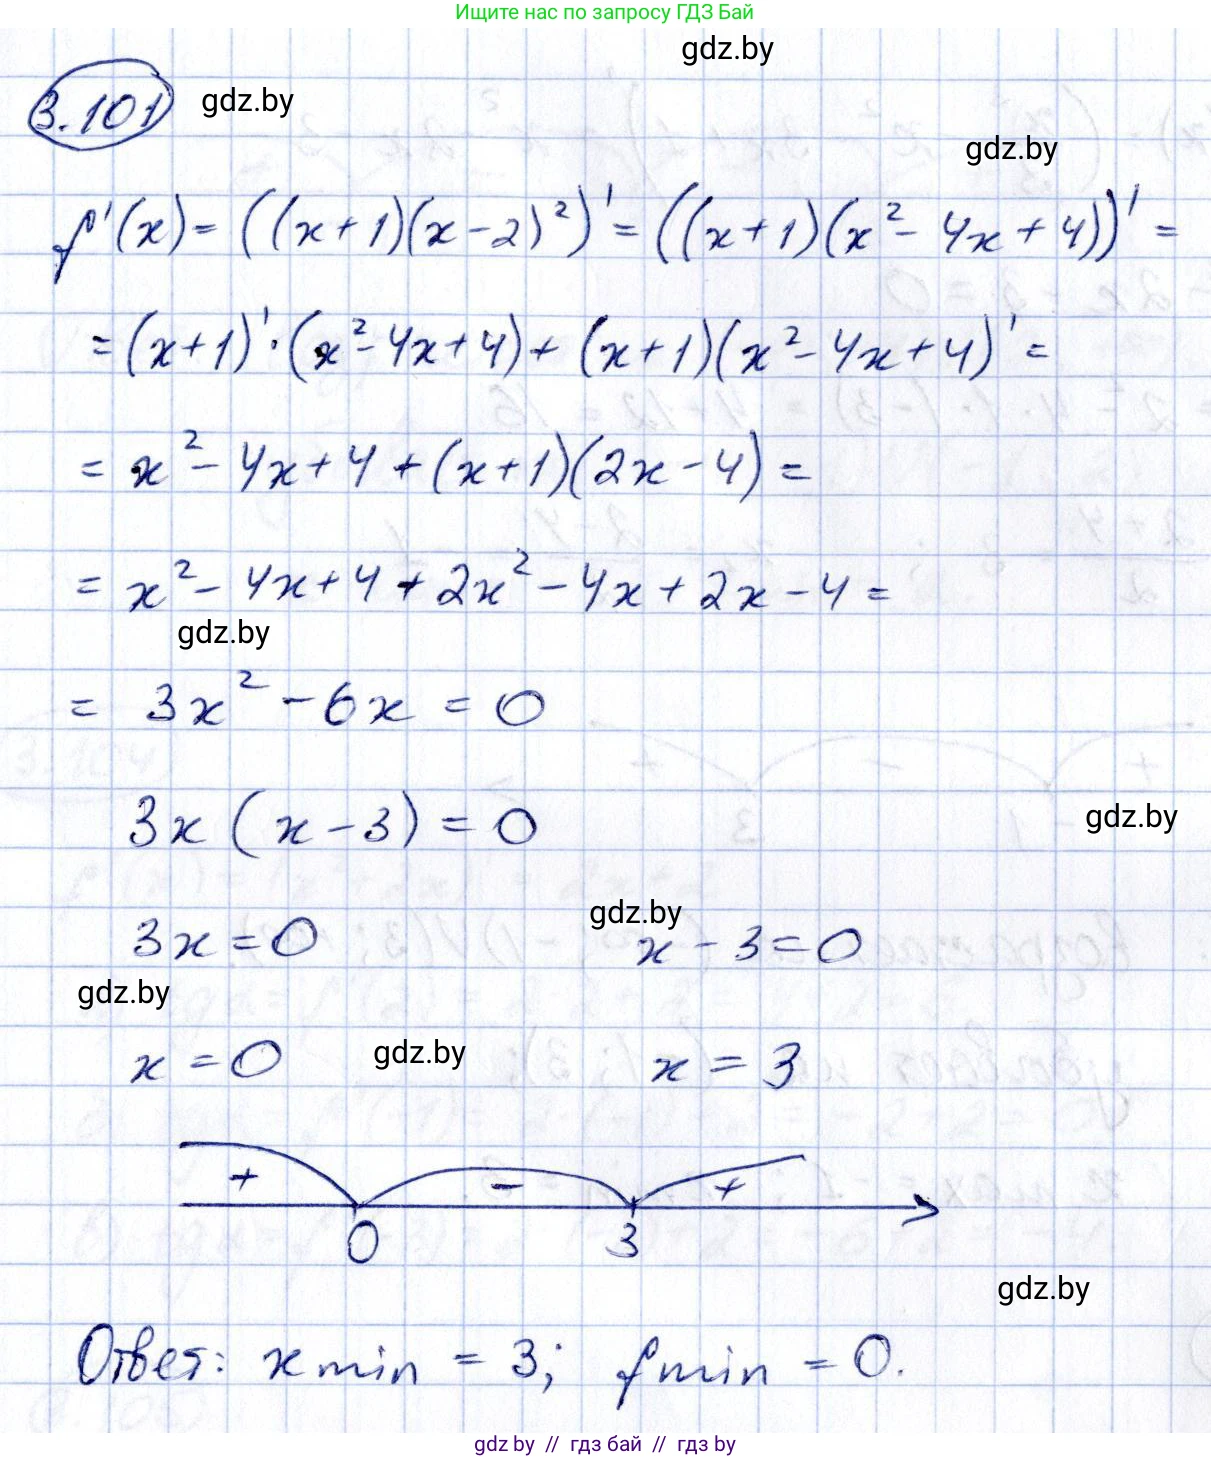 Ищите нас по запросу ГДЗ Бай
gdz.by
3.101 gdz.by
gdz.by
f'(x) = ((x+1)(x-2)²)' = ((x+1)(x²- 4x + 4))' =
= (x+1)'·(x²-4x+4) + (x+1)(x²-4x+4)' =
= x²- 4x+4 + (x+1)(2x-4) =
= x²- 4x+4 + 2x²-4x + 2x-4 =
gdz.by
= 3x² - 6x = 0
3x (x-3) = 0
gdz.by
gdz.by
3x = 0 x - 3 = 0
gdz.by
x = 0 gdz.by x = 3
+ - +
0 3
gdz.by
Ответ: x min = 3; f min = 0.
gdz by // гдз бай // гдз by